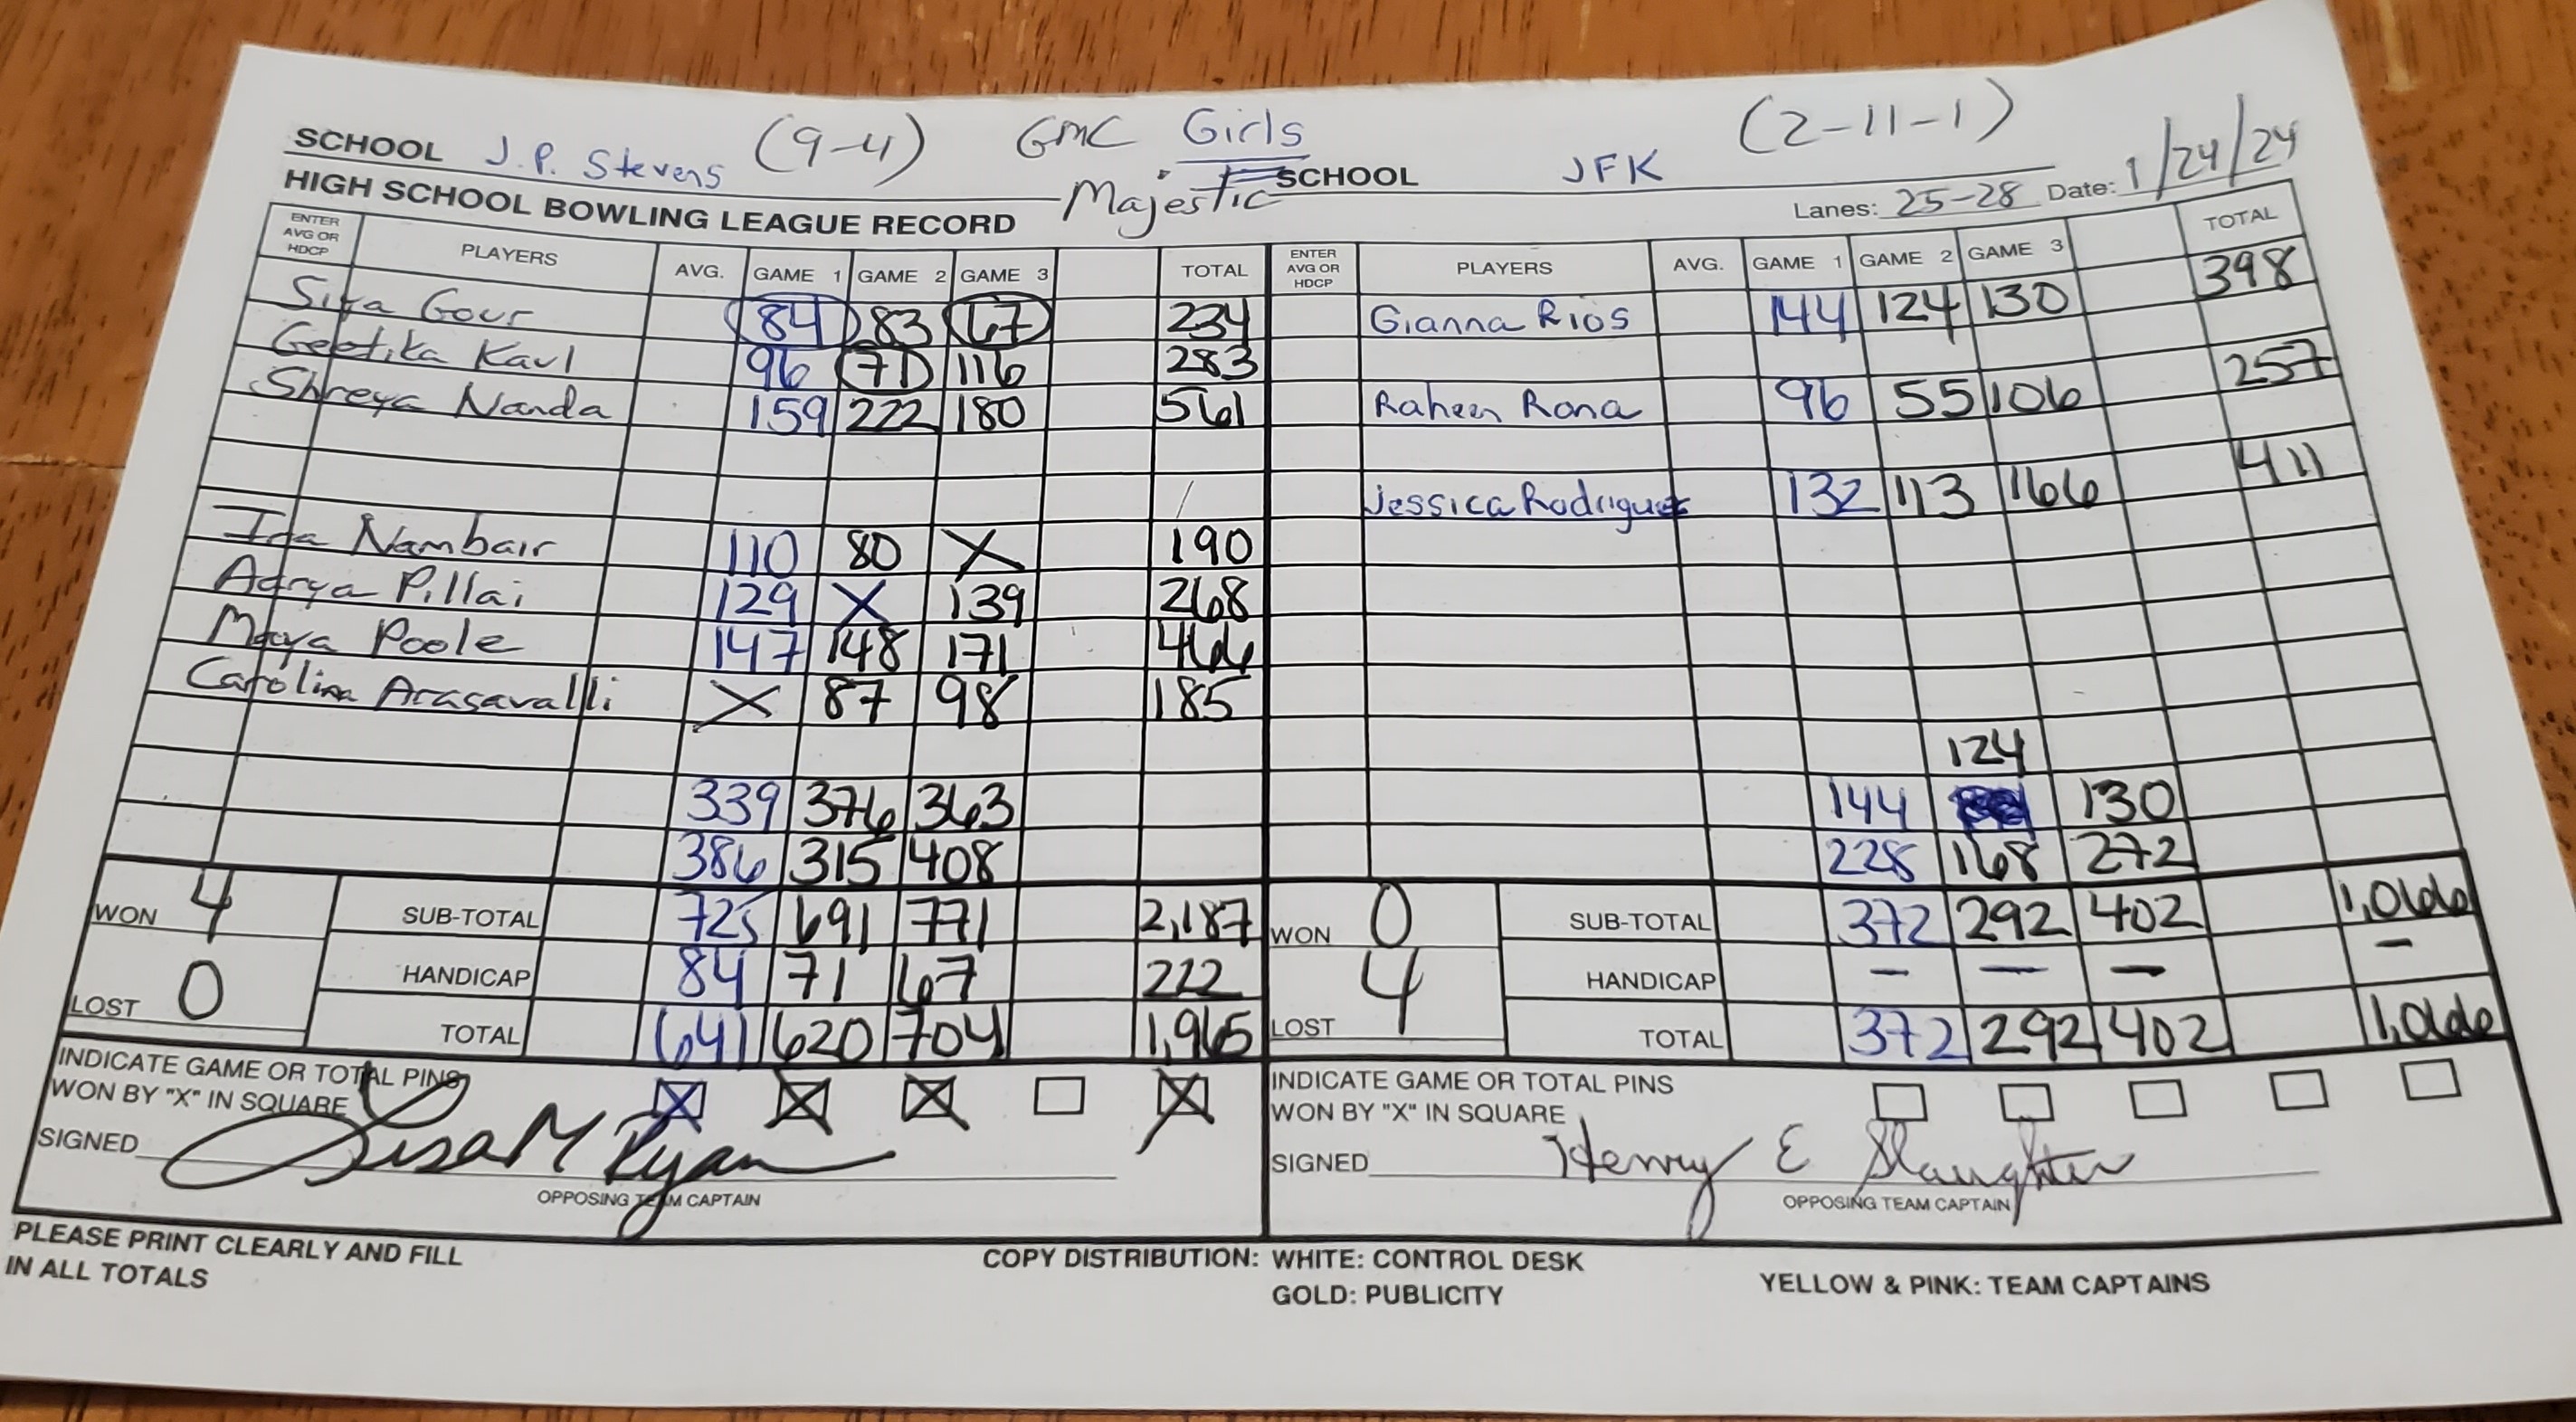 SCHOOL J.P. Stevens (9-4) GMC Girls SCHOOL JFK (2-11-1)
HIGH SCHOOL BOWLING LEAGUE RECORD Majestic Lanes: 25-28 Date: 1/24/24
ENTER AVG OR HDCP PLAYERS AVG. GAME 1 GAME 2 GAME 3 TOTAL ENTER AVG OR HDCP PLAYERS AVG. GAME 1 GAME 2 GAME 3 TOTAL
Siya Gour 84 83 67 234 Gianna Rios 144 124 130 398
Geetika Kaul 96 71 116 283
Shreya Nanda 159 222 180 561 Raheen Rana 96 55 106 257
Jessica Rodriguez 132 113 166 411
Nambair 110 80 X 190
Pillai 129 X 139 268
Maya Poole 147 148 171 466
Carolina Arasavalli X 87 98 185
124
339 376 363 144 130
386 315 408 228 168 272
WON 4 SUB-TOTAL 725 691 771 2,187 WON 0 SUB-TOTAL 372 292 402 1,066
HANDICAP 84 71 67 222 HANDICAP — — — —
LOST 0 TOTAL 641 620 704 1,965 LOST 4 TOTAL 372 292 402 1,066
INDICATE GAME OR TOTAL PINS INDICATE GAME OR TOTAL PINS
WON BY "X" IN SQUARE X X X X WON BY "X" IN SQUARE
SIGNED Lisa M Ryan SIGNED Henry E Slaughter
OPPOSING TEAM CAPTAIN OPPOSING TEAM CAPTAIN
PLEASE PRINT CLEARLY AND FILL
IN ALL TOTALS
COPY DISTRIBUTION: WHITE: CONTROL DESK
GOLD: PUBLICITY
YELLOW & PINK: TEAM CAPTAINS